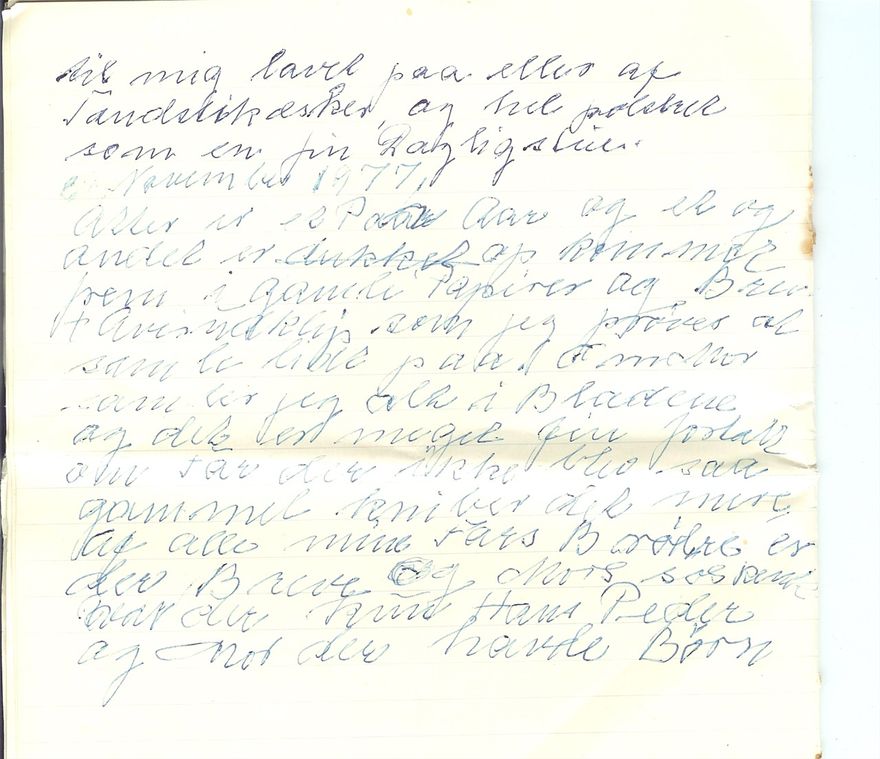 til mig lavet paa eller af
Tændstikæsker, og hel polstret
som en fin Dagligstue.
November 1977.
Atter er et Par Aar og et og
andet er dukket op kommer
frem i gamle Papirer og Breve
+ Avisudklip som jeg prøver at
samle lidt paa
samler jeg alt i Bladene
og det er meget fin fortalt
om Far der ikke blev saa
gammel kniber det mere,
Af alle mine Fars Brødre er
der Breve og Mors søskende
var der kun Hans Peder
og Mor der havde Børn